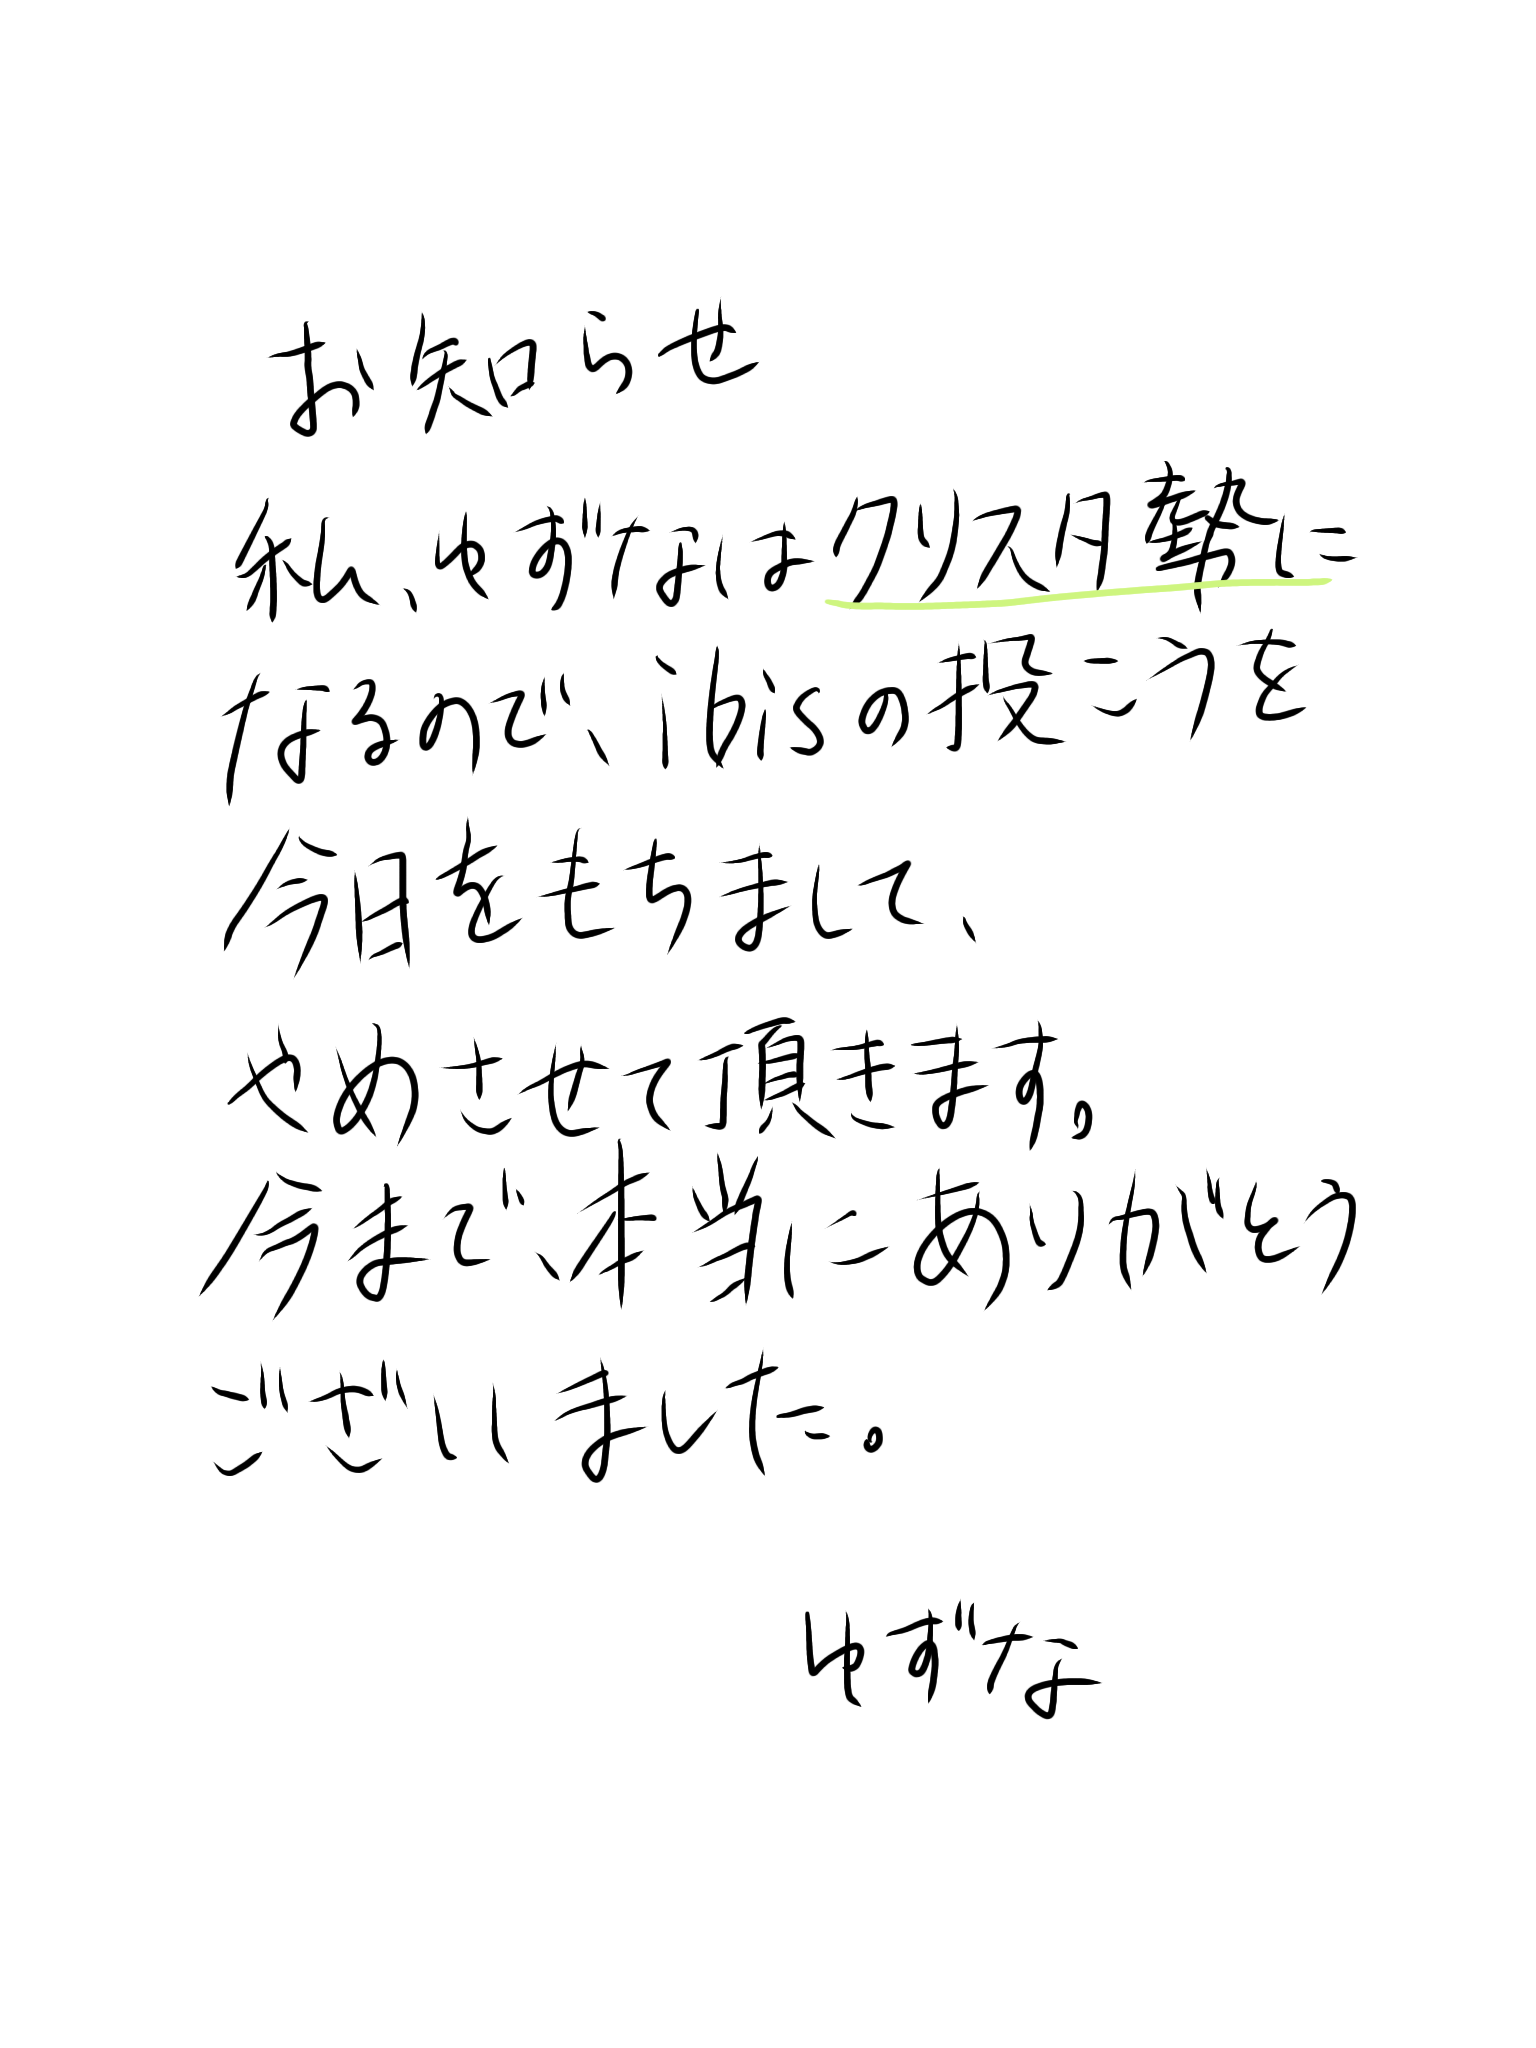 お知らせ
私、ゆずなはクリスタ勢に
なるので、ibisの投こうを
今日をもちまして、
やめさせて頂きます。
今まで、本当にありがとう
ございました。
ゆずな